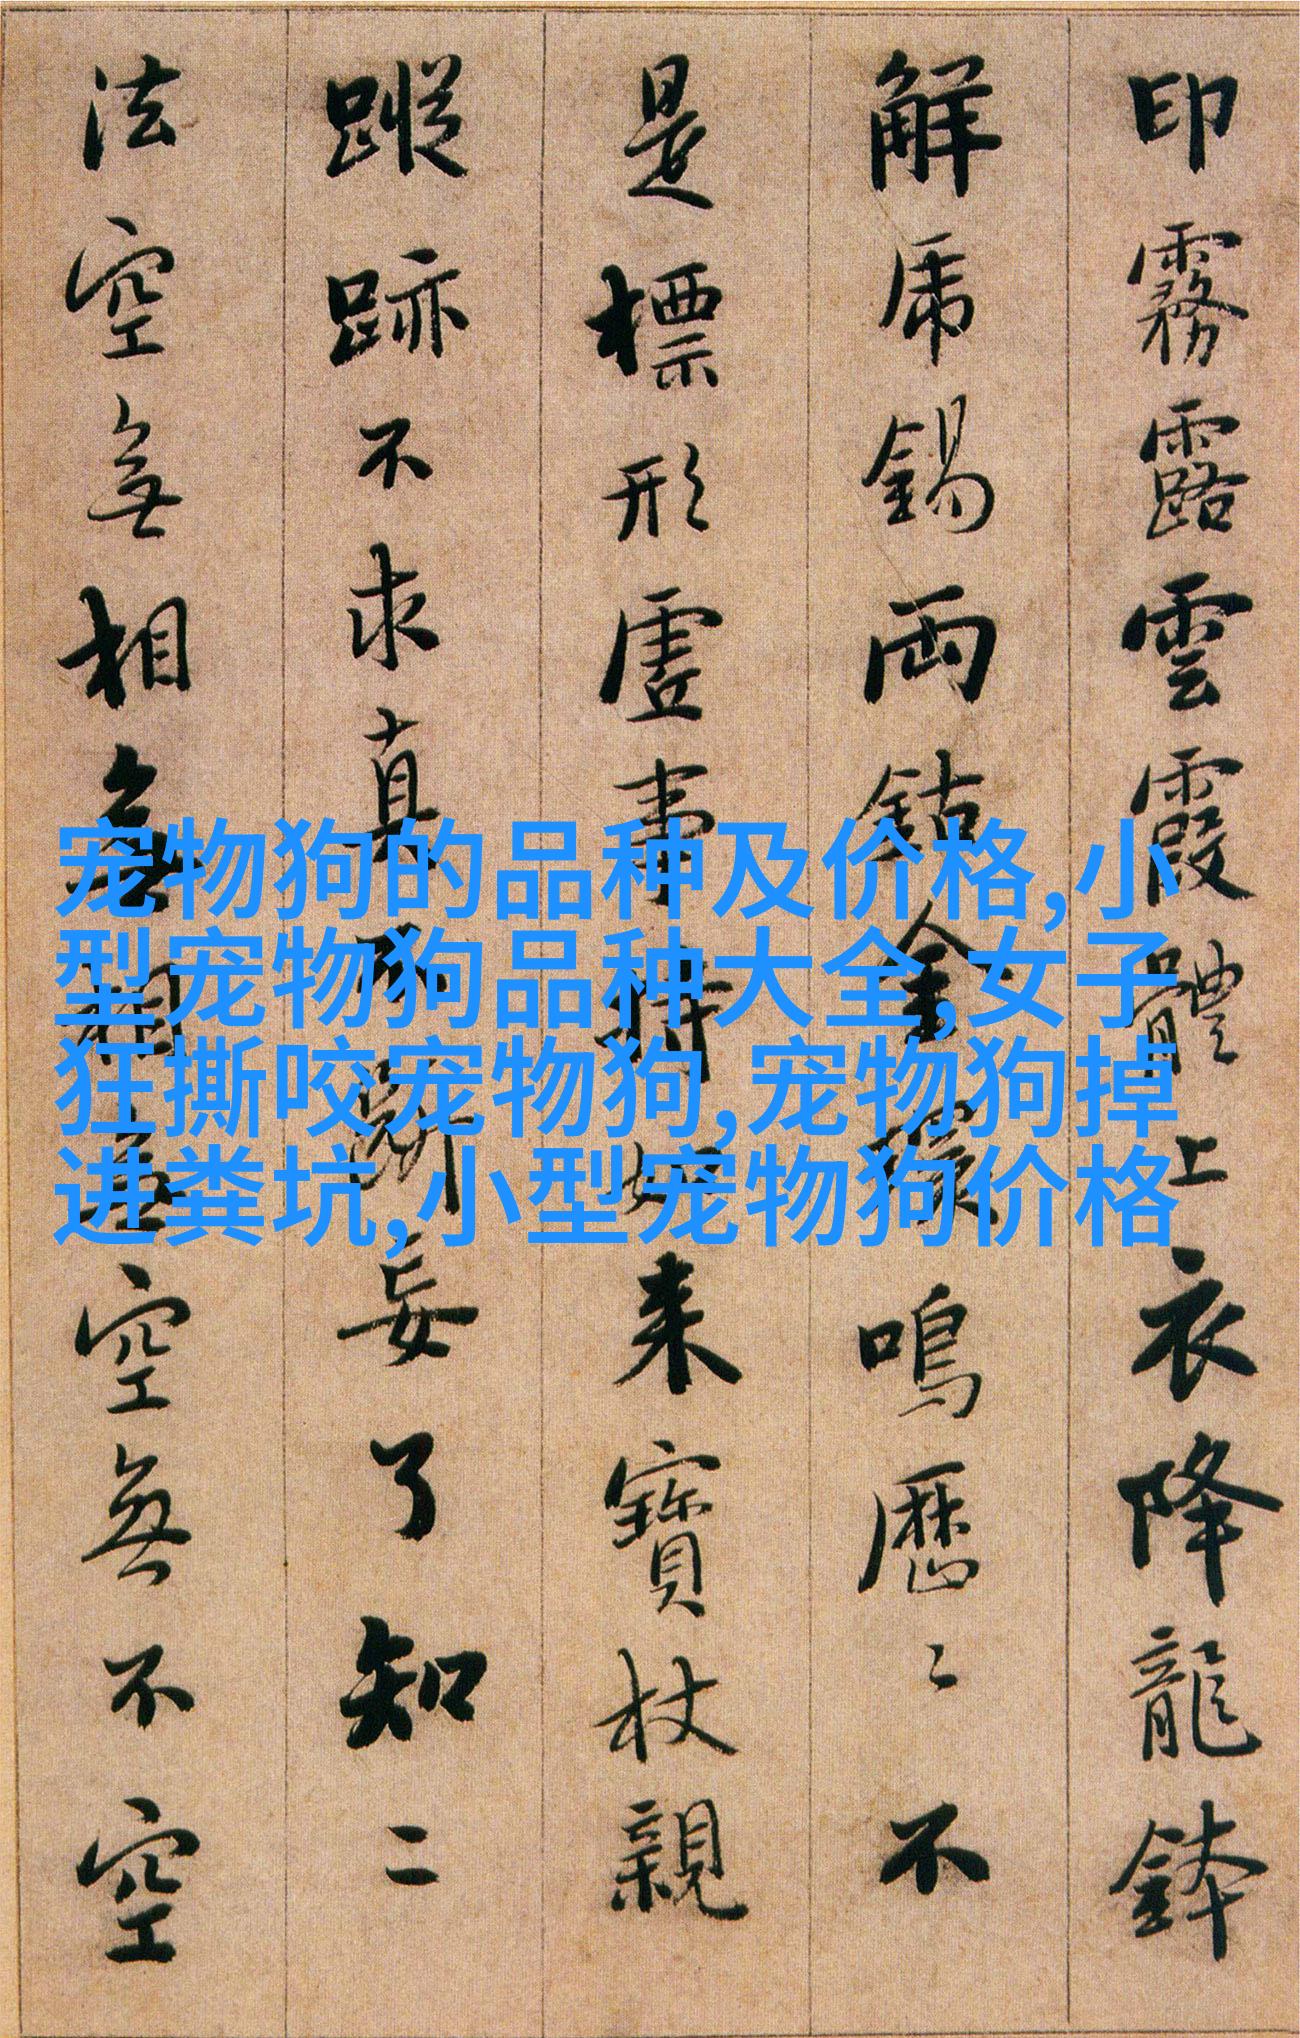 印霧露雲霞體上衣降龍鉢
解虎錫兩鈷金環鳴歷〻不
是標形虛事持如来寶杖親
蹤跡不求真不斷妄了知二
法空無相無相無空無不空
宠物狗的品种及价格,小
型宠物狗品种大全,女子
狂撕咬宠物狗,宠物狗掉
进粪坑,小型宠物狗价格